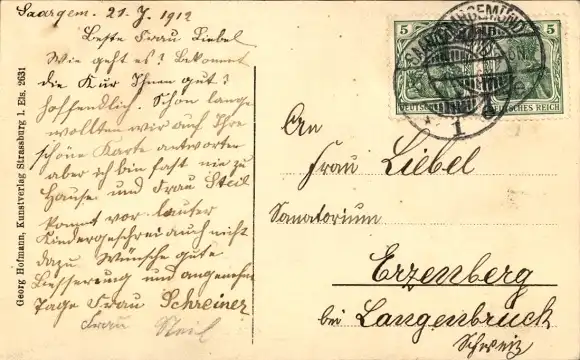 Saargem. 21. J. 1912
Beste Frau Liebel
Wie geht es? Bekommt
die Kur Ihnen gut?
hoffendlich. Schon lange
wollten wir auf Ihre
schöne Karte antworten
aber ich bin fast nie zu
Hause und Frau Steil
kommt vor lauter
Kindergeschrei auch nicht
dazu. Wünsche gute
Besserung und angenehme
Tage Frau Schreiner
Frau Steil
Georg Hofmann, Kunstverlag Strassburg i. Els. 2631
5
5
DEUTSCHES REICH
SAARGEMÜND
1
d
An
Frau Liebel
Sanatorium
Erzenberg
bei Langenbruck
Schweiz